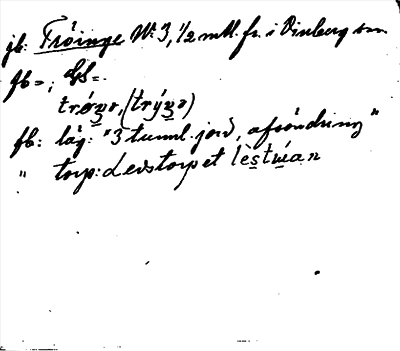 jb: Tröinge № 3, 1/2 mtl. fr. i Vinberg sn
fb =; GS =.
trøʒə, (trýʒə)
fb: läg: "3 tunnl. jord, afsöndring"
" torp: Levstorpet